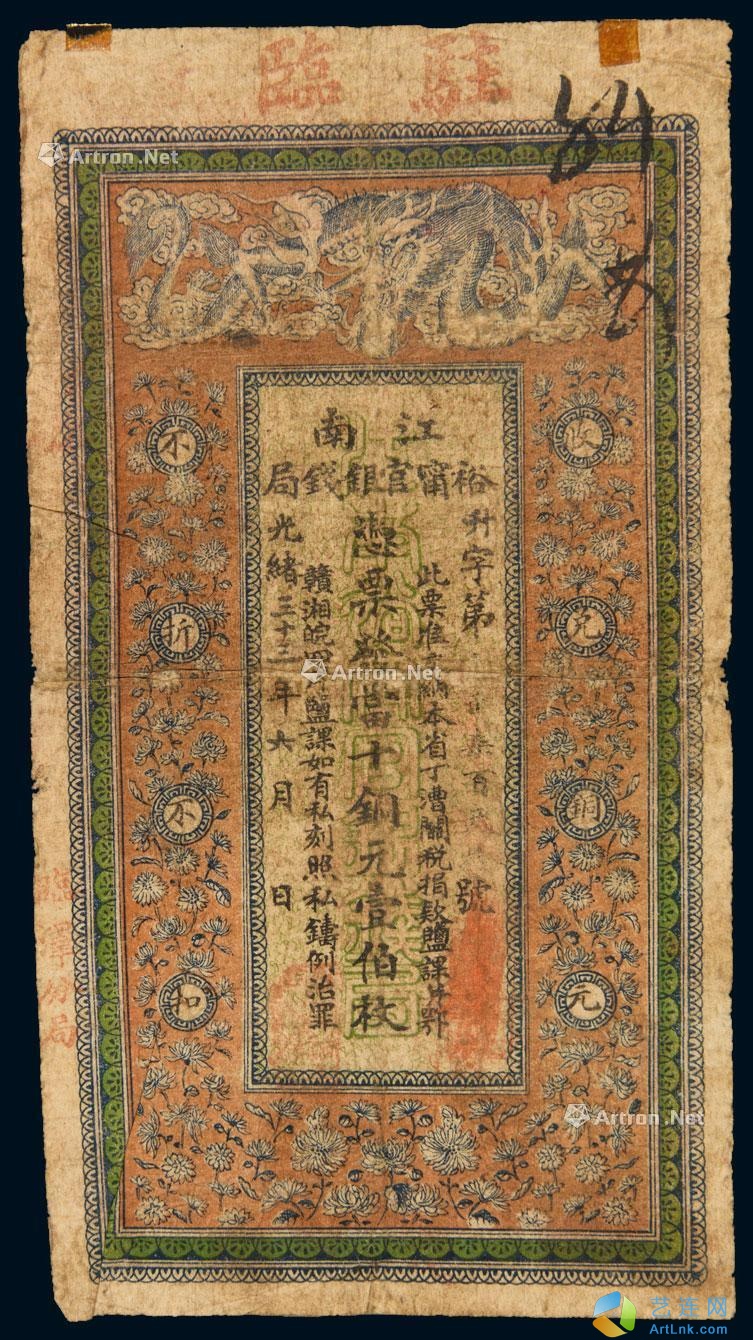 駐臨
江南
裕甯官銀錢局
升字第 柒百 號
此票准完納本省丁漕關稅捐款鹽課并鄂
憑票發當十銅元壹伯枚
贛湘皖四岸鹽課如有私刻照私鑄例治罪
光緒三十二年六月 日
收兌銅元
不折不扣
臨澤分局
Artron.Net
Artron.Net
Artron.Net
Artron.Net
艺连网
ArtLnk.com